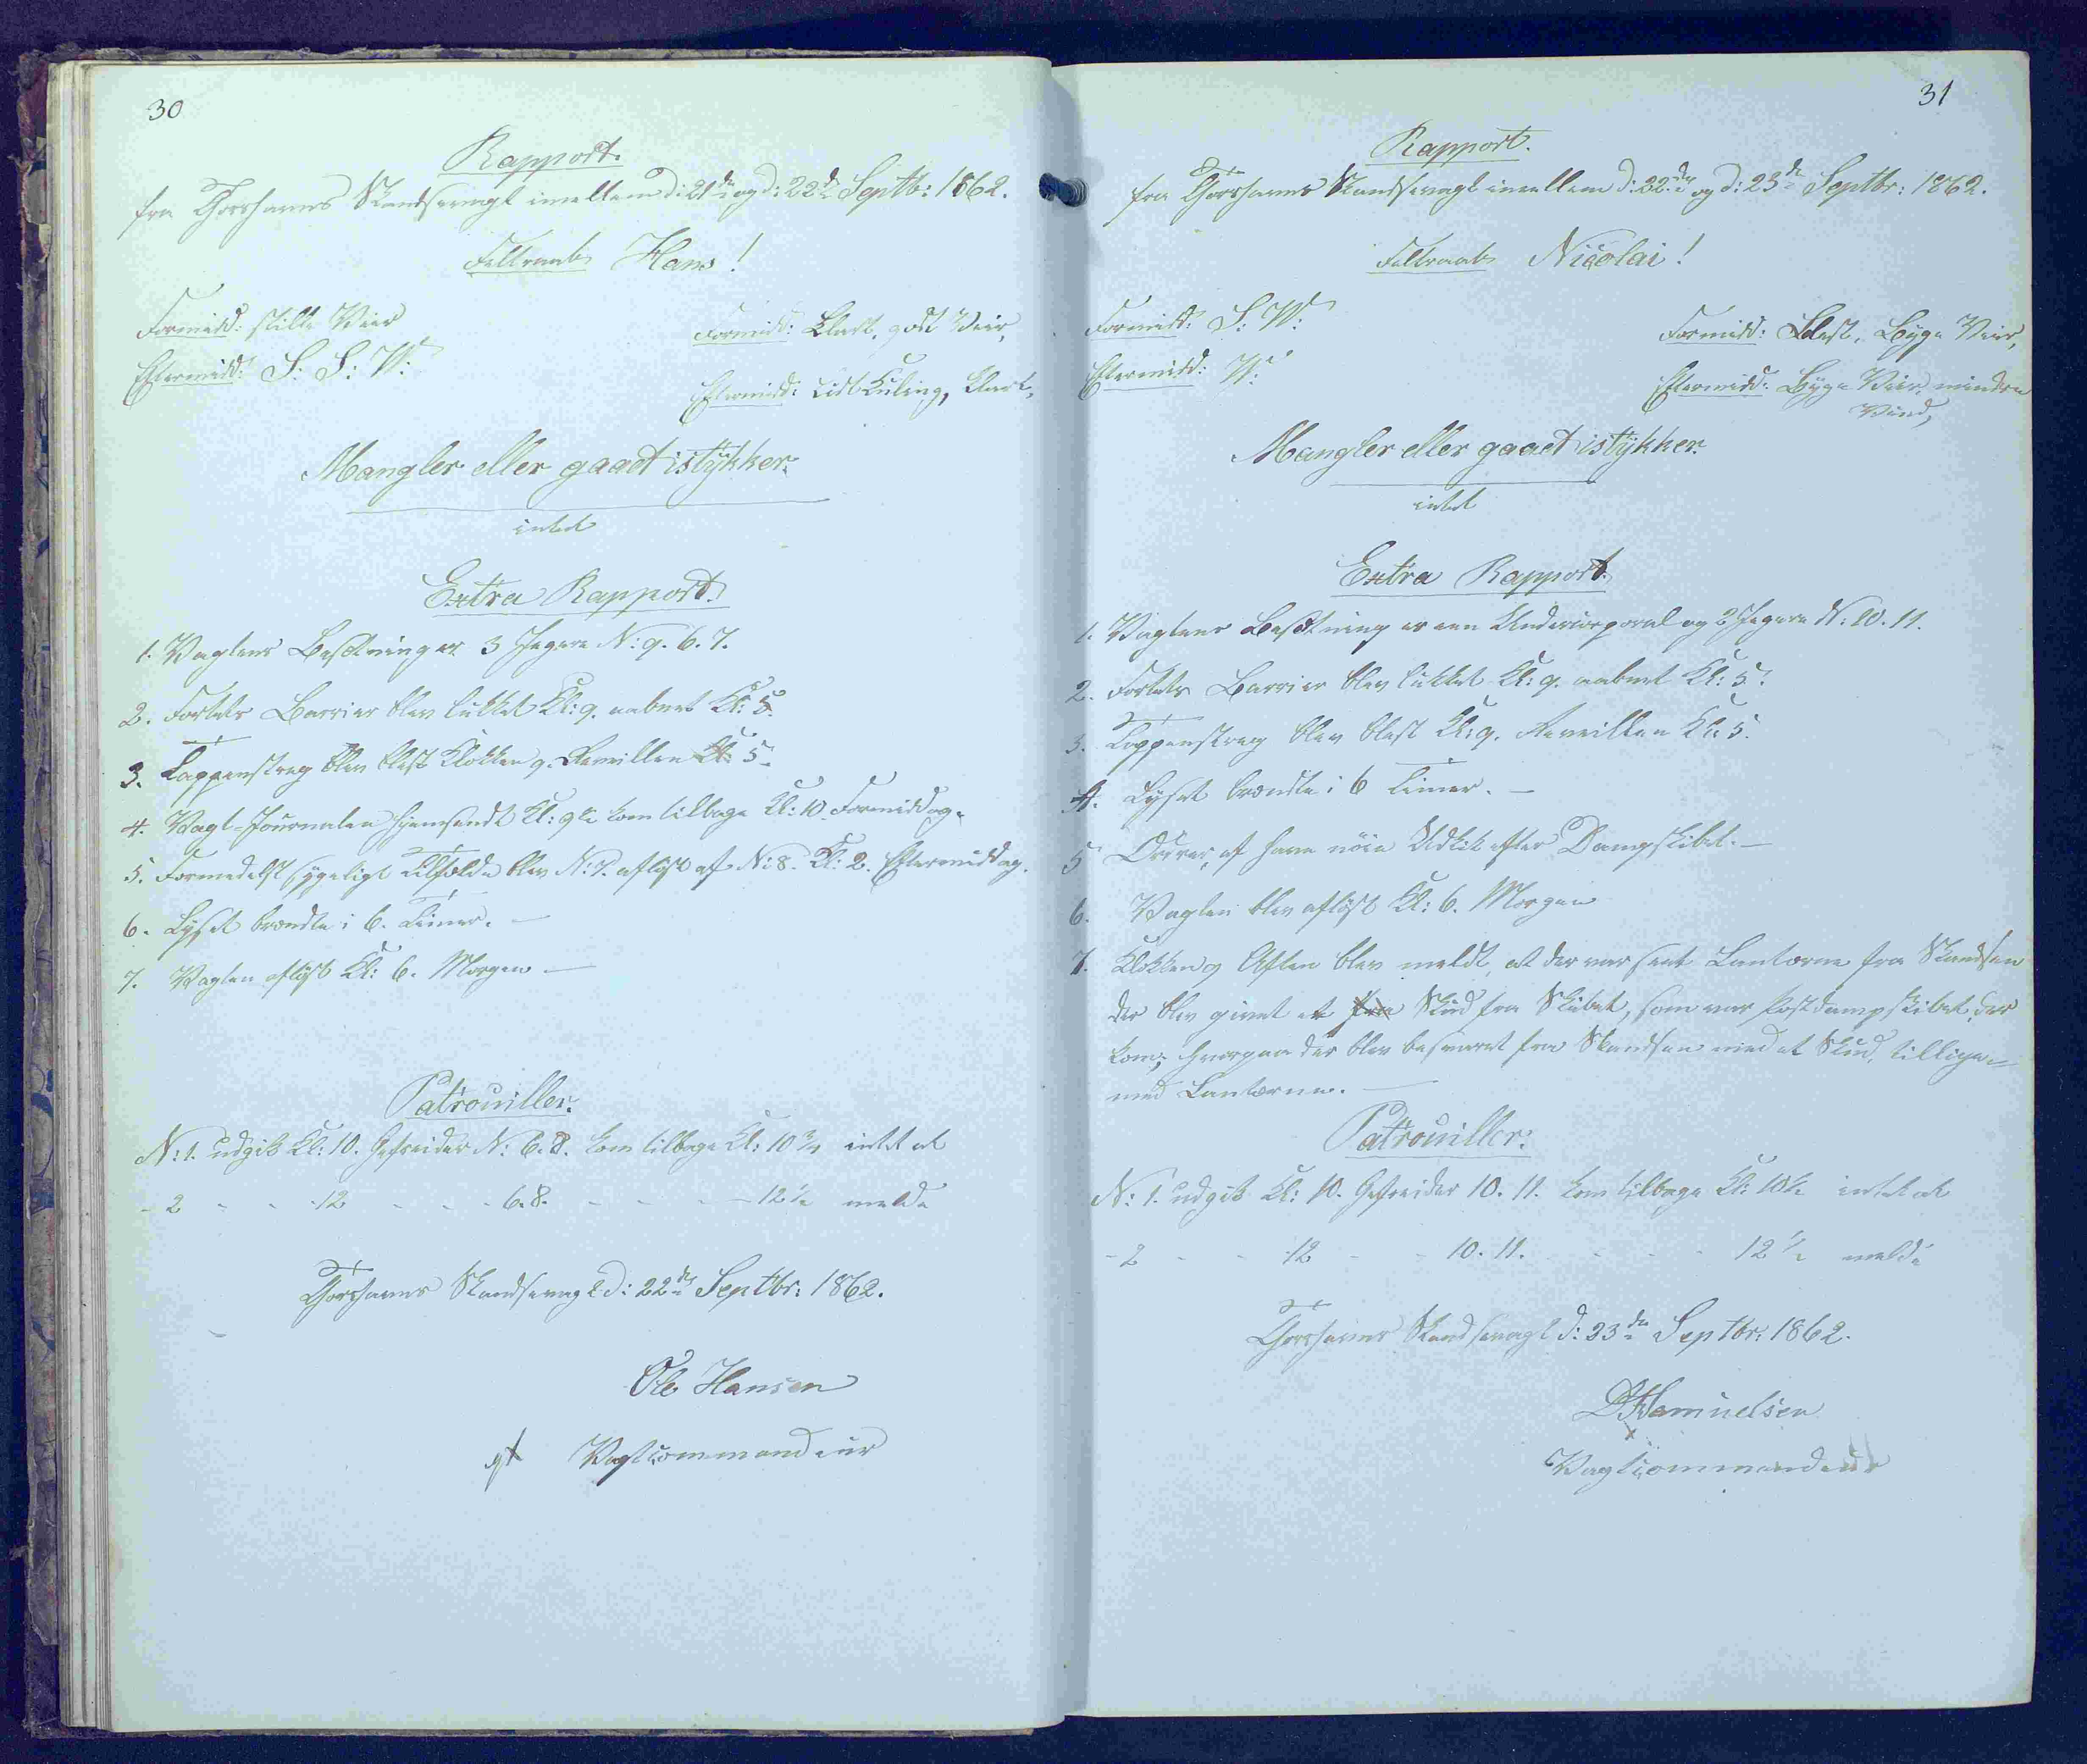 30
Rapport.
fra Thorshavns Skandsevagt imellem d: 21de og d: 22de Septb: 1862.
Feltraab Hans!
Formidd: stille Veir
Formid: Klart, godt Veir,
Eftermidd: S: S: W:
Eftermidd: Lidt Kuling, klart,
Mangler eller gaaet istÿkker.
intet
Extra Rapport.
1. Vagtens Besætning er 3 Jægere N: 9. 6. 7.
2. Fortets Barrier blev lukket Kl: 9. aabnet Kl: 5.
3. Tappenstreg blev blæst Klokken 9. Reveillen Kl: 5.
4. Vagt-Journalen hjemsendt Kl: 9 1/2 kom tilbage Kl: 10 Formiddag.
5. Formedelst sÿgeligt Tilfælde blev N: 7. afløst af N: 8. Kl: 2. Eftermiddag.
6. Lyset brændte i 6. Timer. —
7. Vagten afløst Kl: 6. Morgen —
Patrouiller.
N: 1. udgik Kl: 10. Gefreider N: 6. 8. kom tilbage Kl: 10 1/2 intet at
- 2 - - 12 - - - 6. 8. - - - - 12 1/2 melde
Thorshavns Skandsevagt d: 22de Septbr: 1862.
Ole Hansen
Vagtcommandeur
31
Rapport.
fra Thorshavns Skandsevagt imellem d: 22de og d: 23de Septbr: 1862.
Feltraab Nicolai!
Formidd: S: W:
Formidd: Blæst, Byge Veir,
Eftermidd: W:
Eftermidd: Byge Veir, mindre
Vind,
Mangler eller gaaet istÿkker.
intet
Extra Rapport.
1. Vagtens Besætning er een Undercorporal og 2 Jægere N: 10. 11.
2. Fortets Barrier blev lukket Kl: 9. aabnet Kl: 5.
3. Tappenstreg blev blæst Kl: 9. Reveillen Kl: 5.
4. Lÿset brændte i 6 Timer. —
5 Ordres, at have nöie Udkik efter Dampskibet. —
6. Vagten blev afløst Kl: 6. Morgen
7. Klokken 9 Aften blev meldt, at der var seet Lanterne fra Skandsen
der blev givet et fra Skud fra Skibet, som var Postdampskibet, der
kom, hvorpaa der blev besvaret fra Skandsen med et Skud, tillige=
med Lanterne. —
Patrouiller.
N: 1. udgik Kl: 10. Gefreider 10. 11. kom tilbage Kl: 10 1/2 intet at
- 2 - - 12 - - 10. 11. - - - 12 1/2 melde
Thorshavns Skandsevagt d: 23de Septbr: 1862.
Samuelsen
Vagtcommandeur